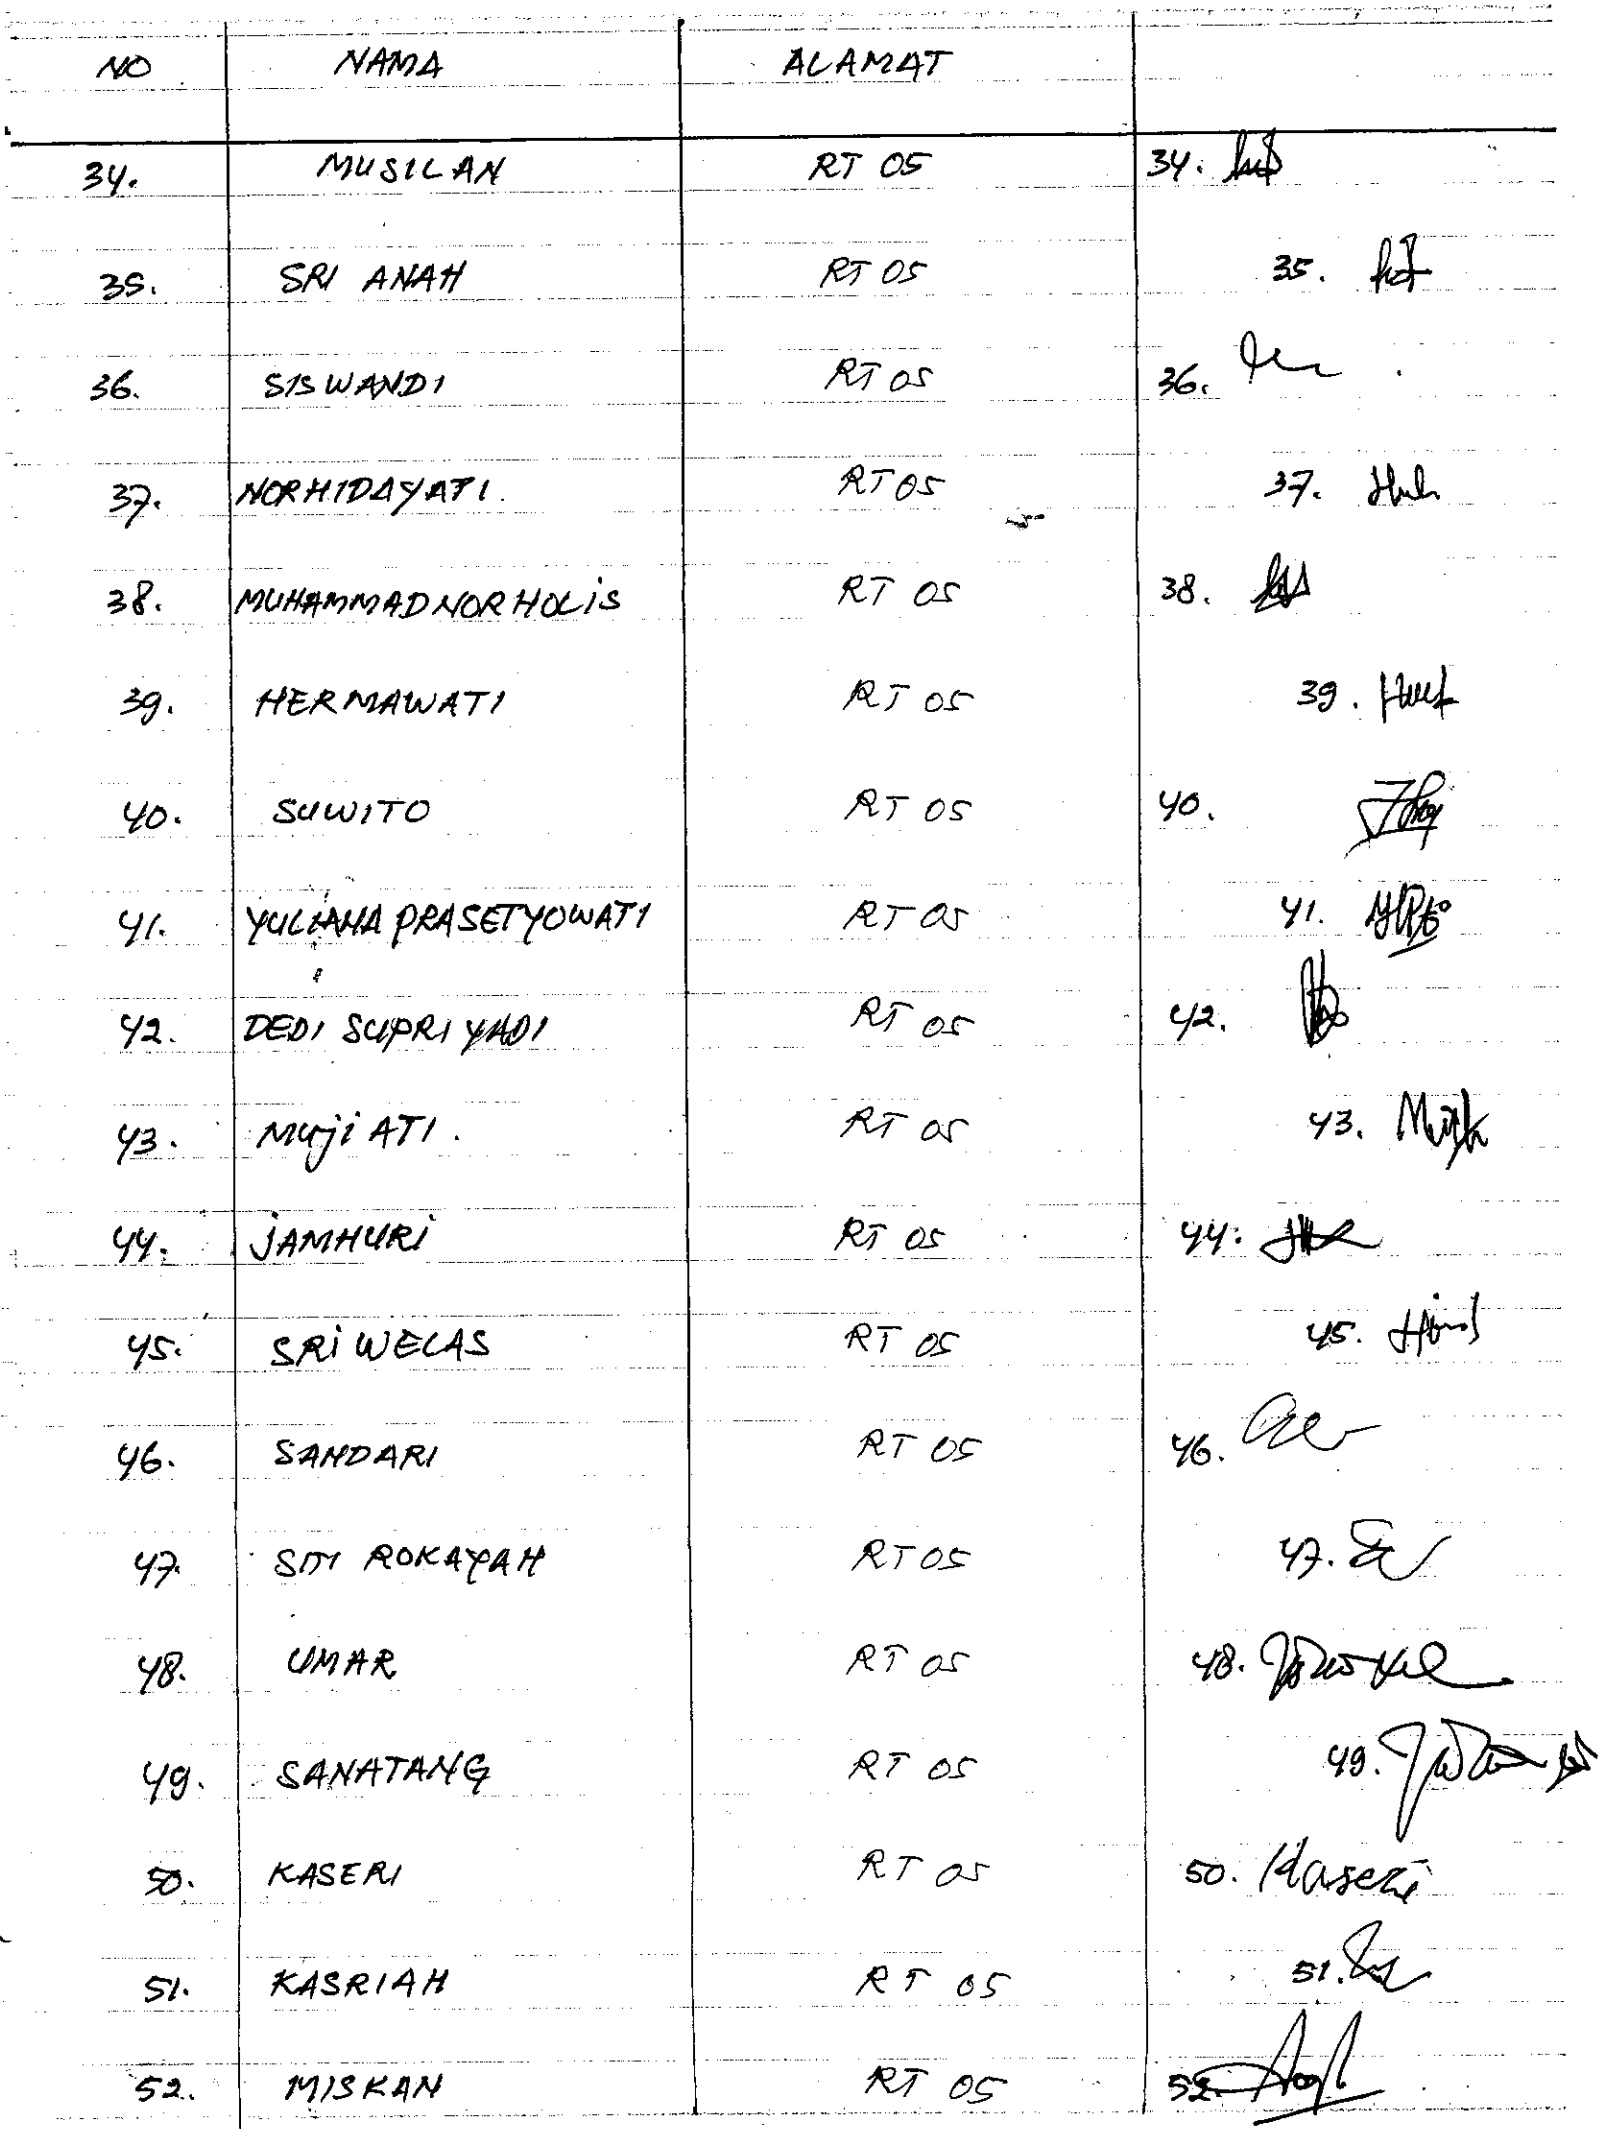 NO NAMA ALAMAT
34. MUSILAN RT 05 34.
35. SRI ANAH RT 05 35.
36. SISWANDI RT 05 36.
37. NORHIDAYATI. RT 05 37.
38. MUHAMMAD NORHOLIS RT 05 38.
39. HERMAWATI RT 05 39.
40. SUWITO RT 05 40.
41. YULIANA PRASETYOWATI RT 05 41.
42. DEDI SUPRIYADI RT 05 42.
43. MUjiATI. RT 05 43.
44. JAMHURi RT 05 44.
45. SRi WELAS RT 05 45.
46. SANDARI RT 05 46.
47. SITI ROKAYAH RT 05 47.
48. UMAR RT 05 48.
49. SANATANG RT 05 49.
50. KASERI RT 05 50. Kaseri
51. KASRIAH RT 05 51.
52. MISKAN RT 05 52.